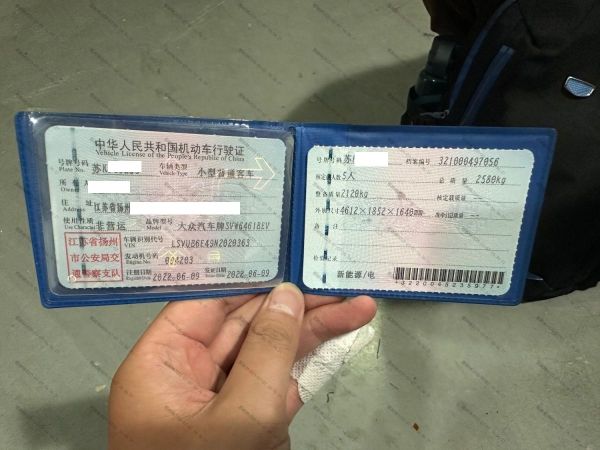 中华人民共和国机动车行驶证
Vehicle License of the People's Republic of China
号牌号码 苏K 车辆类型 小型普通客车
Plate No. Vehicle Type
所有人
Owner
住址 江苏省扬州
Address
使用性质 非营运 品牌型号 大众汽车牌SVW6461BEV
Use Character Model
江苏省扬州
市公安局交
通警察支队
车辆识别代号
VIN
发动机号码
Engine No.
注册日期 2022-06-09 发证日期 2022-06-09
Register Date Issue Date
号牌号码 苏 档案编号 321000497056
核定载人数 5人 总质量 2580kg
整备质量 2120kg 核定载质量
外廓尺寸 4612×1852×1640mm 准牵引总质量
备注
检验记录
新能源/电
*3220045235977*